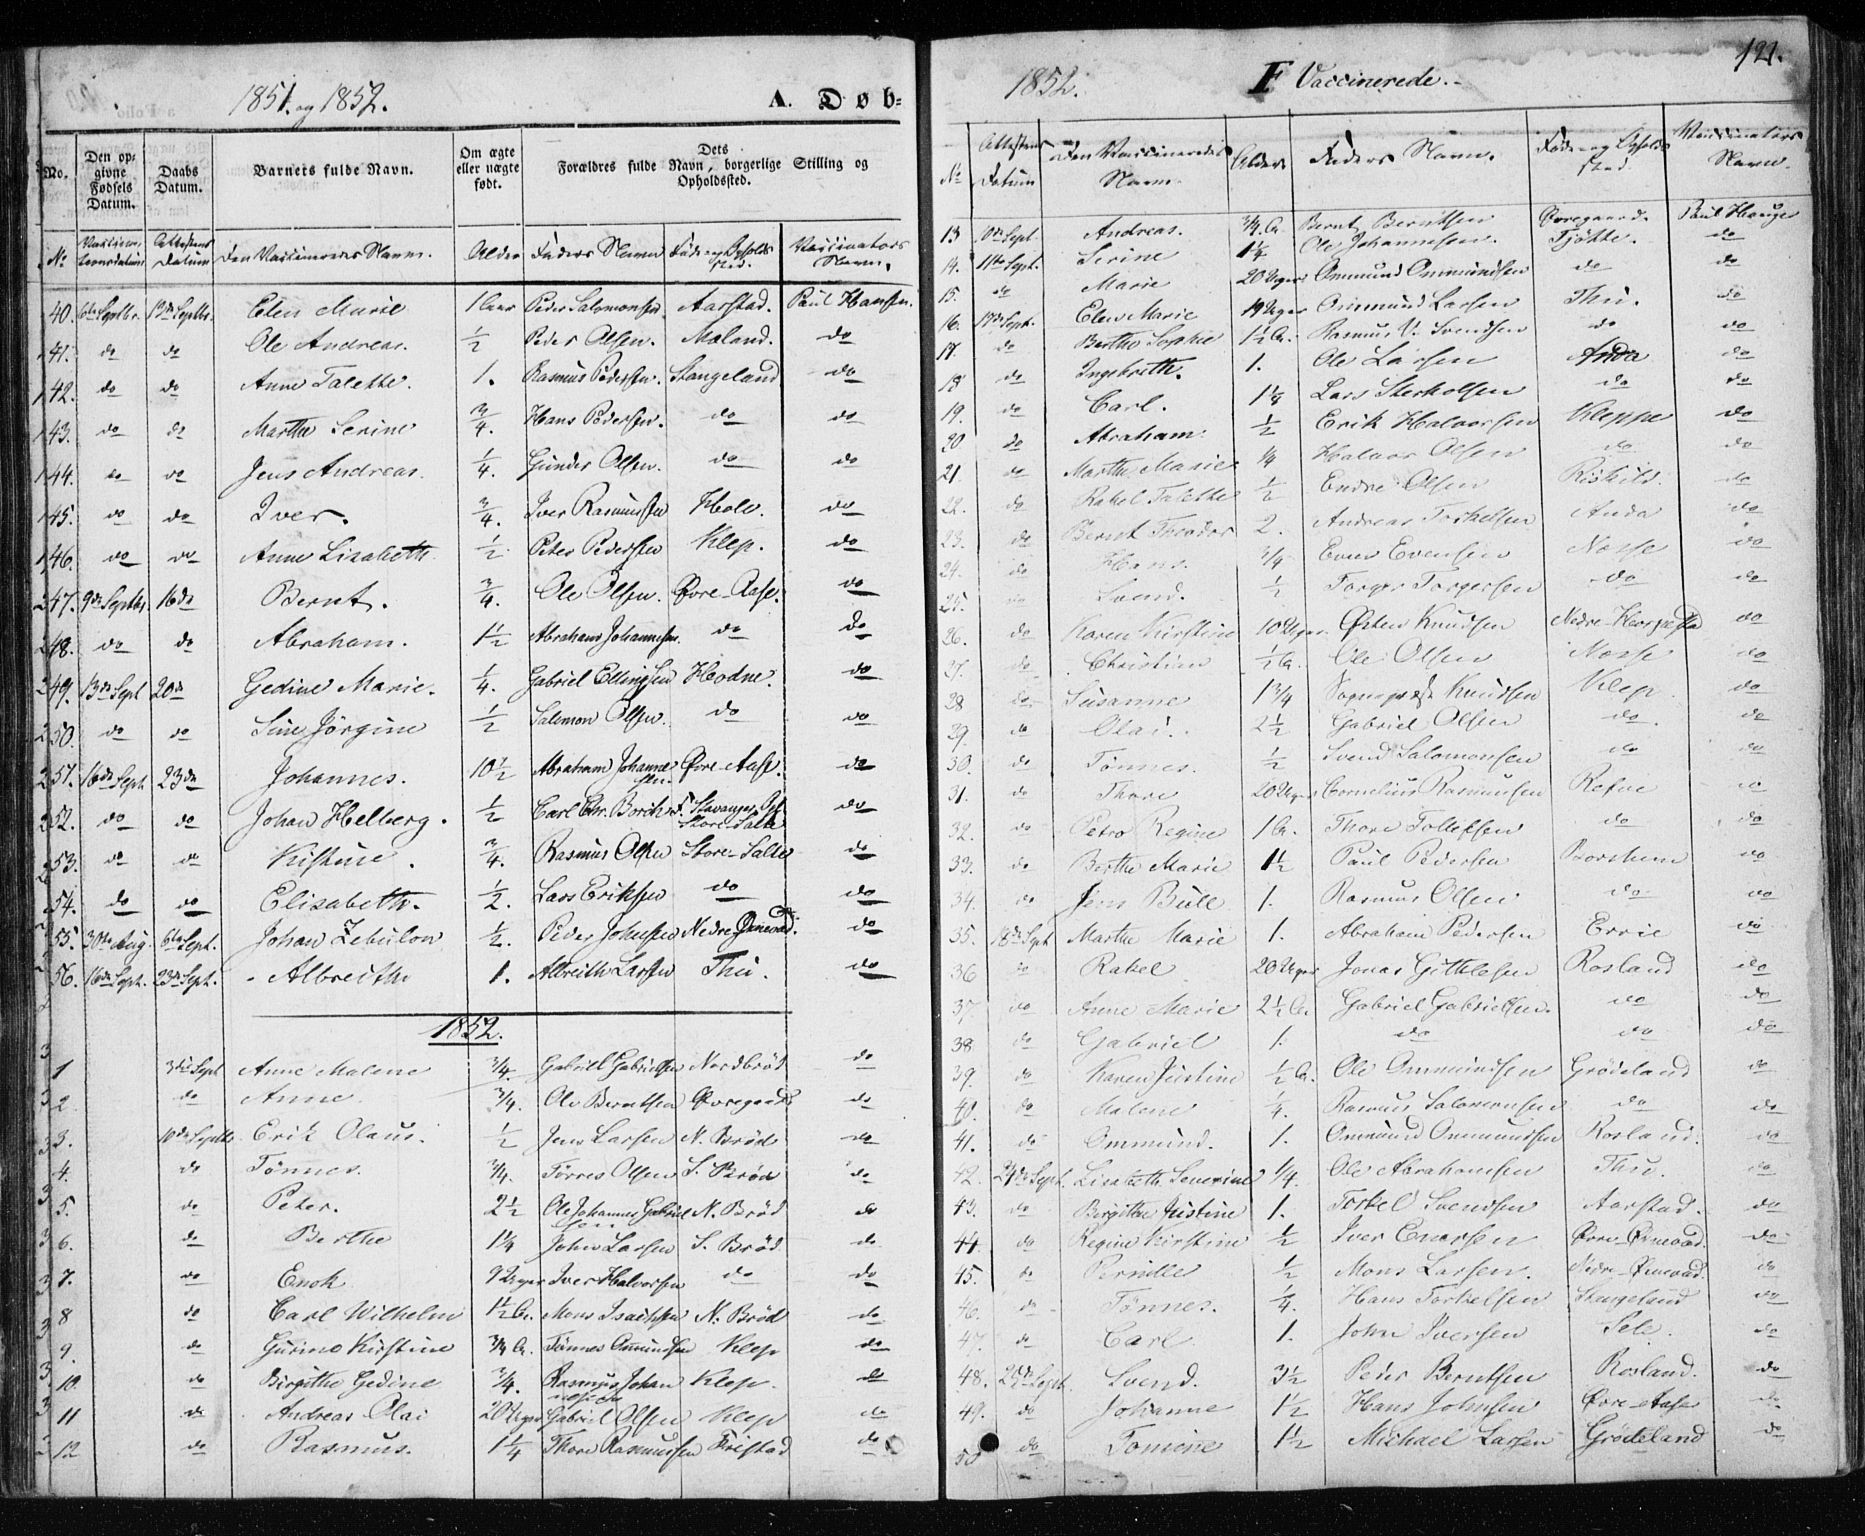 1851. og 1852.
A. Døb-
No.
Den op-
givne
Fødsels
Datum.
Daabs
Datum.
Barnets fulde Navn.
Om ægte
eller uægte
født.
Dets
Forældres fulde Navn, borgerlige Stilling og
Opholdssted.
No Vaccina-
tionsdatum Attestens
Datum Den Vaccineredes Navn. Alder Faders Navn Føde og Opholds
sted. Vaccinators
Navn.
40. 6te Septbr. 13de Septbr. Elen Marie 1 Aar Peder Salomonsen Aarstad. Paul Hansen.
41. do do Ole Andreas. 1/2 Peder Olsen. Mæland. do
42. do do Anne Talette. 1. Rasmus Pedersen. Stangeland do
43. do do Marthe Serine 3/4. Hans Pedersen. do do
44. do do Jens Andreas. 1/4. Gunder Olsen. do do
45. do do Iver. 3/4. Iver Rasmussen Hole. do
46. do do Anne Lisabeth 1/2. Peter Pedersen Klep. do
47. 9de Septbr. 16de Bernt. 3/4. Ole Olsen. Øvre-Aase. do
48. do do Abraham. 1 1/2 Abraham Johannesen do do
49. 13de Sept 20de Gedine Marie. 1/4. Gabriel Ellingsen Hodne. do
50. do do Sine Jørgine 1/2 Salemon Olsen. do do
51. 16de Sept 23de Johannes. 10 1/2 Abraham Johanne
sen Øvre Aase. do
52. do do Johan Helberg. 1/2 Carl Chr. Borch
Store-Salte do
53. do do Kistine. 3/4. Rasmus Olsen Store-Salte do
54. do do Elisabeth. 1/2. Lars Eriksen do do
55. 30te Aug. 6te Sept. Johan Zebulon 1/2. Peder Johnsen Nedre Øxnevad. do
56. 16de Sept. 23de Sept. Albreithe 1. Albreith Larsen Thu. do
1852.
1 3die Sept Anne Malene 3/4. Gabriel Gabrielsen Nordbrød do
2. do Anne 3/4. Ole Berntsen Øvregaard do
3. 10de Septbr Erik Olaus. 1/2 Jens Larsen N. Brød do
4. do Tønnes. 3/4. Tørres Olsen S. Brød do
5. do Peter. 2 1/2 Ole Johannes Gabriel
sen N. Brød do
6. do Berthe 1 1/4 John Larsen S. Brød do
7. do Enok 9 Uger Iver Halvorsen do do
8 do Carl Wilhelm 1 1/2 A. Mons Isachsen N. Brød do
9. do Gurine Kirstine 3/4 A. Tønnes Ommundsen Klep do
10. do Birgithe Gedine 3/4. Rasmus Johan
nesen Klep. do
11 do Andreas Olai 20 Uger Gabriel Olsen Klep do
12 do Rasmus. 1 1/4 Thore Rasmussen Friestad do
121.
1852. F Vaccinerede.
No Attestens
Datum Den Vaccineredes
Navn. Alder Faders Navn. Føde og Opholds
sted. Vaccinators
Navn.
13 10de Sept. Andreas. 3/4 A. Bernt Berntsen Øvregaard. Paul Hauge
14. 11te Sept. Serine 1 1/4 Ole Johannesen. Tjøtte. do
15. do Marie 20 Uger Ommund Ommundsen do do
16. 17de Sept. Elen Marie 19 Uger Ommund Larsen Thu. do
17. do Berthe Sophie 1 1/2 A. Rasmus V. Svendsen do do
18 do Ingebrethe. 1. Ole Larsen Anda do
19. do Carl. 1 1/4 Lars Therkelsen do do
20 do Abraham 1/2 Erik Halvorsen Kleppe do
21. do Marthe Marie 1/4 Halvor Olsen do do
22. do Rakel Talette 1/2 Endre Olsen do
23. do Bernt Theodor 2. Andreas Torkelsen Anda do
24. do Hans. 3/4 Even Evensen Næsse do
25. do Svend. 1/2 Torger Torgersen do do
26. do Karen Kirstine 10 Uger Østen Knudsen do
27. do Christian 1/2 A. Ole Olsen Næsse do
28 do Susanne 1 3/4 Sognepræst Knudsen Klep do
29. do Olai. 2 1/2 Gabriel Olsen do. do
30. do Tønnes. 1/2 Svend Salomonsen do do
31. do Thore 20 Uger Cornelius Rasmussen Refve do
32. do Petro Regine 1 A. Thore Tollefsen do do
33. do Berthe Marie 1 1/2 Paul Pedersen Borshem do
34. do Jens Bull 1. Rasmus Olsen do do
35. 18de Sept Marthe Marie 1. Abraham Pedersen Errie do
36 do Rakel 20 Uger Jonas Gitlesen Rosland do
37 do Anne Marie 2 1/2 A. Gabriel Gabrielsen. do do
38. do Gabriel 1. do do do
39. do Karen Justine 1/2 A. Ole Ommundsen Grødeland do
40. do Malene 1/4. Rasmus Salomonsen do do
41. do Ommund. 1. Ommund Ommundsen Rosland. do
42. 24de Sept. Lisabeth Severine 1/4. Ole Abrahamsen Thu. do
43. do Birgithe Justine 1. Torkel Svendsen Aarstad. do
44. do Regine Kirstine 1/2 Iver Enersen Øvre-Øxnevad. do
45. do Pernille 1/2 Mons Larsen. Nedre-Øxnevad. do
46. do Tønnes. 1/4. Hans Torkelsen Stangeland do
47. do Carl 1. John Iversen Sele. do
48. Sept. Svend. 3 1/2 Peder Berntsen Rosland. do
49. do Johanne 1 1/2 Hans Johnsen Øvre-Aase do
50 do Tomine 1 1/2 Michael Larsen Grødeland do